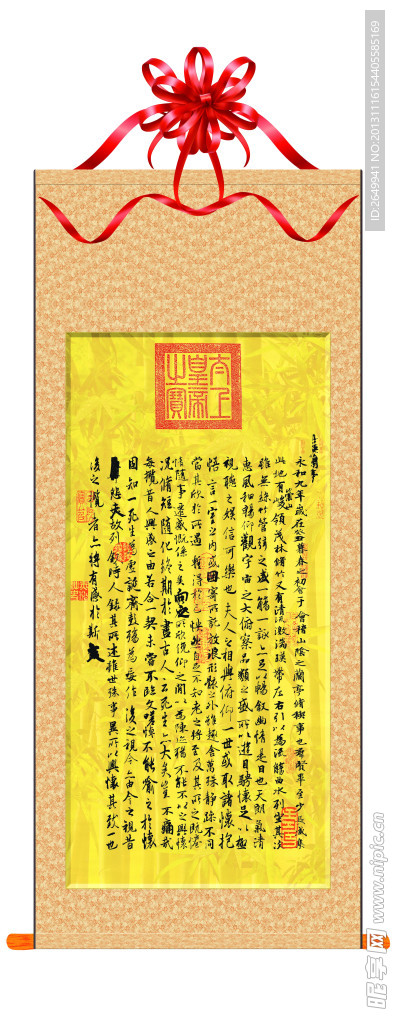 太上
皇帝
之寶
永和九年歲在癸丑暮春之初會于會稽山陰之蘭亭脩禊事也羣賢畢至少長咸集
此地有崇山峻領茂林脩竹又有清流激湍暎帶左右引以為流觴曲水列坐其次
雖無絲竹管弦之盛一觴一詠亦足以暢敘幽情是日也天朗氣清
惠風和暢仰觀宇宙之大俯察品類之盛所以遊目騁懷足以極
視聽之娛信可樂也夫人之相與俯仰一世或取諸懷抱
悟言一室之內或因寄所託放浪形骸之外雖趣舍萬殊靜躁不同
當其欣於所遇蹔得於己怏然自足不知老之將至及其所之既惓
情隨事遷感慨係之矣向之所欣俛仰之間以為陳迹猶不能不以之興懷
況脩短隨化終期於盡古人云死生亦大矣豈不痛哉
每攬昔人興感之由若合一契未嘗不臨文嗟悼不能喻之於懷
固知一死生為虛誕齊彭殤為妄作後之視今亦由今之視昔
悲夫故列敘時人錄其所述雖世殊事異所以興懷其致一也
後之攬者亦將有感於斯文
ID:2649941 NO:20131116154405585169
昵享网 www.nipic.cn